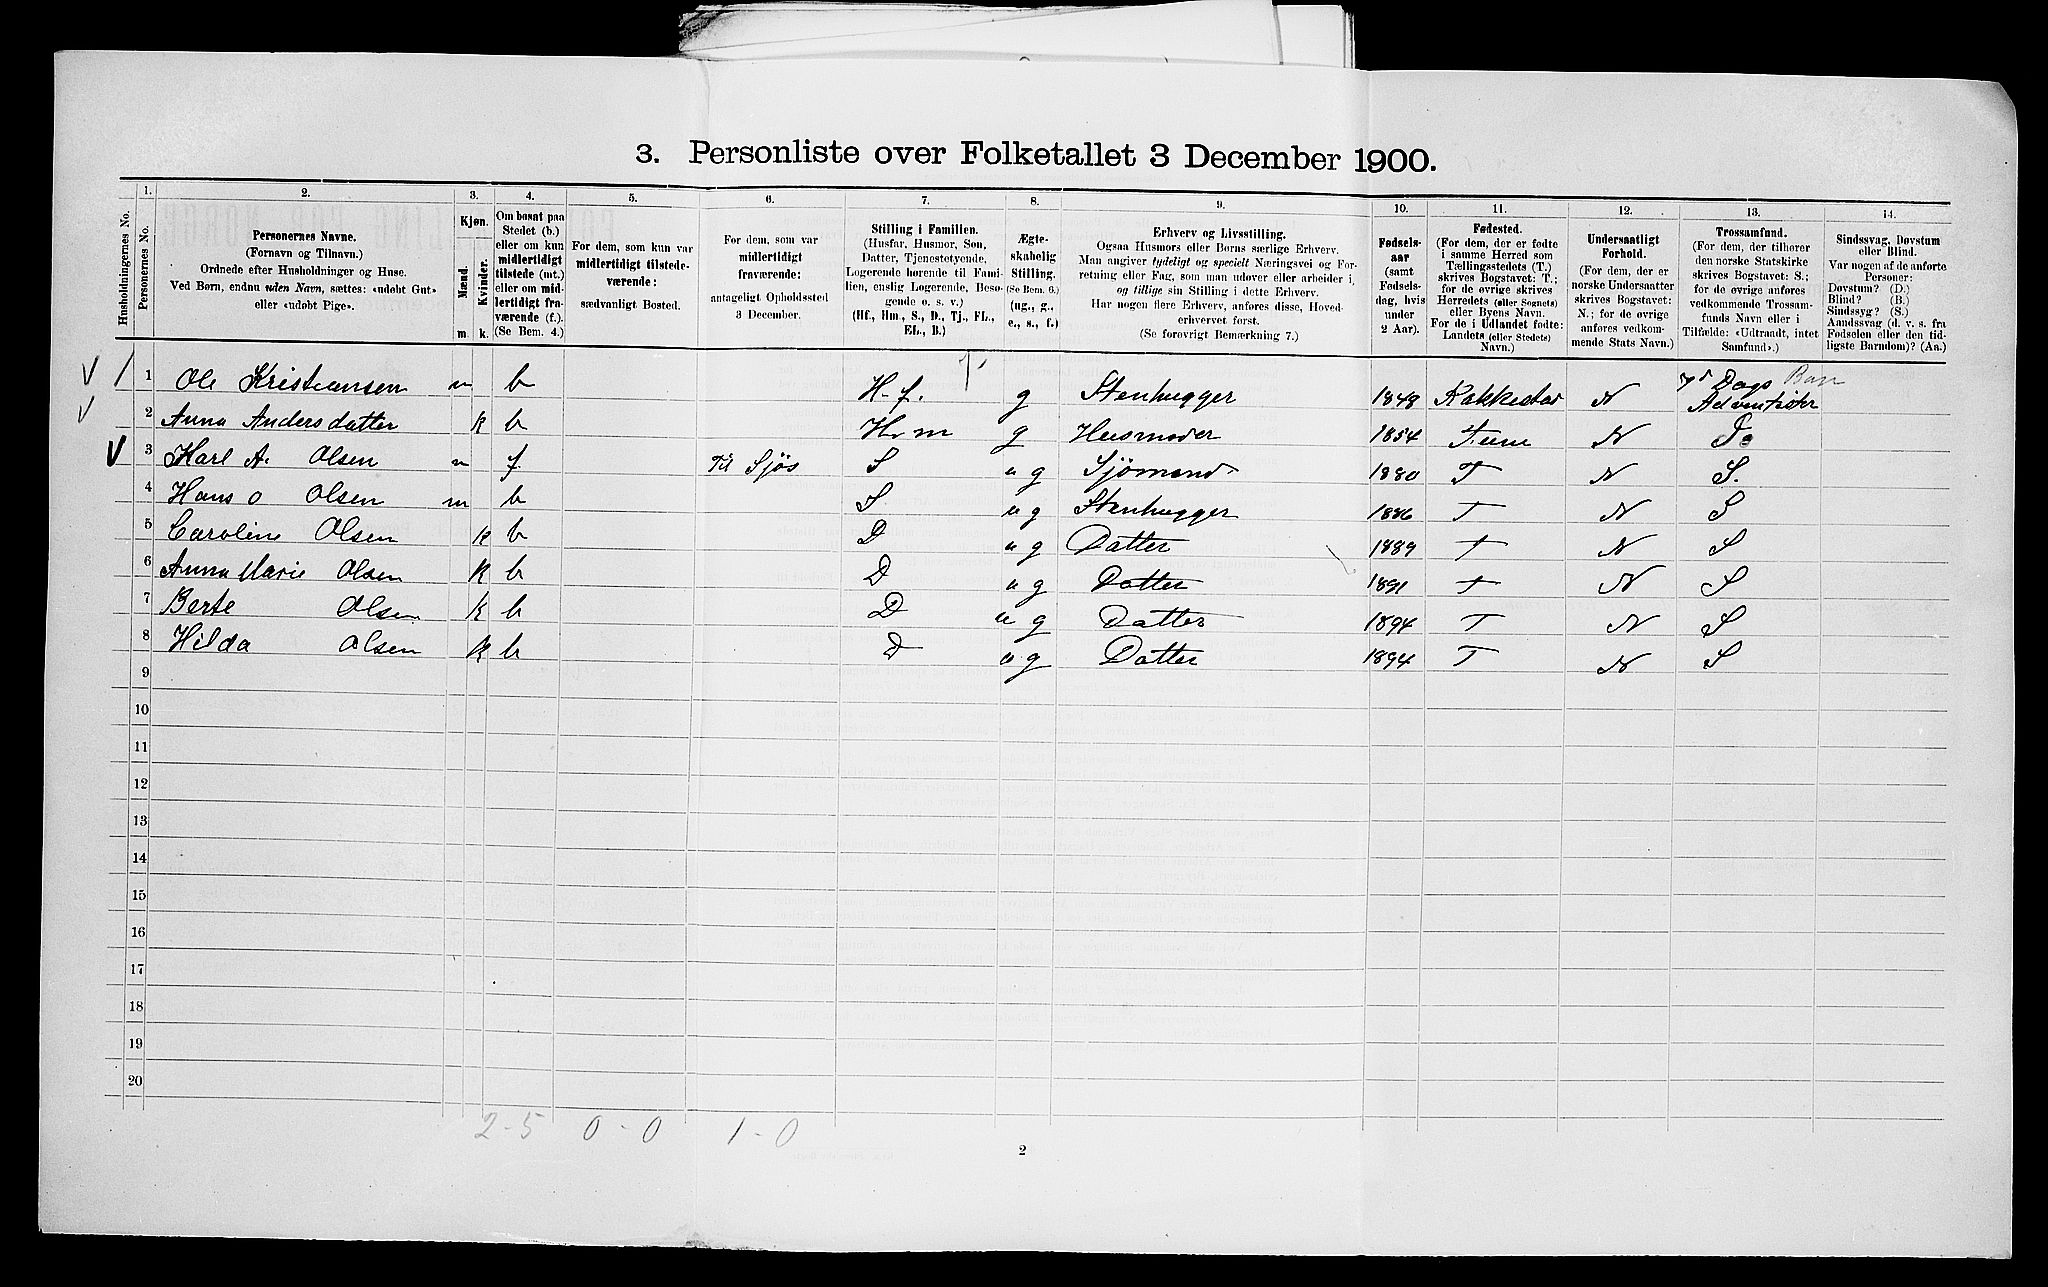 3. Personliste over Folketallet 3 December 1900.
1. 2. 3. 4. 5. 6. 7. 8. 9. 10. 11. 12. 13. 14.
Husholdningernes No.
Personernes No.
Personernes Navne.
(Fornavn og Tilnavn.)
Ordnede efter Husholdninger og Huse.
Ved Børn, endnu uden Navn, sættes: «udøbt Gut»
eller «udøbt Pige».
Kjøn.
Mænd.
Kvinder.
m. k.
Om bosat paa
Stedet (b.)
eller om kun
midlertidigt
tilstede (mt.)
eller om mid-
lertidigt fra-
værende (f.).
(Se Bem. 4.)
For dem, som kun var
midlertidigt tilstede-
værende:
sædvanligt Bosted.
For dem, som var
midlertidigt
fraværende:
antageligt Opholdssted
3 December.
Stilling i Familien.
(Husfar, Husmor, Søn,
Datter, Tjenestetyende,
Logerende hørende til Fami-
lien, enslig Logerende, Besø-
gende o. s. v.)
(Hf., Hm., S., D., Tj., FL.,
EL., B.)
Ægte-
skabelig
Stilling.
(Se Bem. 6.)
(ug., g.,
e., s., f.)
Erhverv og Livsstilling.
Ogsaa Husmors eller Børns særlige Erhverv.
Man angiver tydeligt og specielt Næringsvei og For-
retning eller Fag, som man udøver eller arbeider i,
og tillige sin Stilling i dette Erhverv.
Har nogen flere Erhverv, anføres disse, Hoved-
erhvervet først.
(Se forøvrigt Bemærkning 7.)
Fødsels-
aar
(samt
Fødsels-
dag, hvis
under
2 Aar).
Fødested.
(For dem, der er fødte
i samme Herred som
Tællingsstedets (T.)
skrives Bogstavet: T.;
for de øvrige skrives
Herredets (eller Sognets)
eller Byens Navn.
For de i Udlandet fødte:
Landets (eller Stedets)
Navn.)
Undersaatligt
Forhold.
(For dem, der er
norske Undersaatter
skrives Bogstavet:
N.; for de øvrige
anføres vedkom-
mende Stats Navn.)
Trossamfund.
(For dem, der tilhører
den norske Statskirke
skrives Bogstavet: S.;
for de øvrige anføres
vedkommende Trossam-
funds Navn eller i
Tilfælde: «Udtraadt, intet
Samfund».)
Sindssvag, Døvstum
eller Blind.
Var nogen af de anførte
Personer:
Døvstum? (D.)
Blind? (B.)
Sindssyg? (S.)
Aandssvag (d. v. s. fra
Fødselen eller den tid-
ligste Barndom)? (Aa.)
1 Ole Kristiansen m b H.f. g Stenhugger 1848 Rakkestad N 7d Dags Adventister
2 Anna Andersdatter k b Hm g Husmoder 1854 Tune N Do
3 Karl A. Olsen m f. Til Sjøs S ug Sjömand 1880 T N S.
4 Hans O Olsen m b S ug Stenhugger 1886 T N S
5 Caroline Olsen k b D ug Datter 1889 T N S
6 Anna Marie Olsen k b D ug Datter 1891 T N S
7 Berte Olsen k b D ug Datter 1894 T N S
8 Hilda Olsen k b D ug Datter 1894 T N S
9
10
11
12
13
14
15
16
17
18
19
20
2-5 0-0 1-0
2